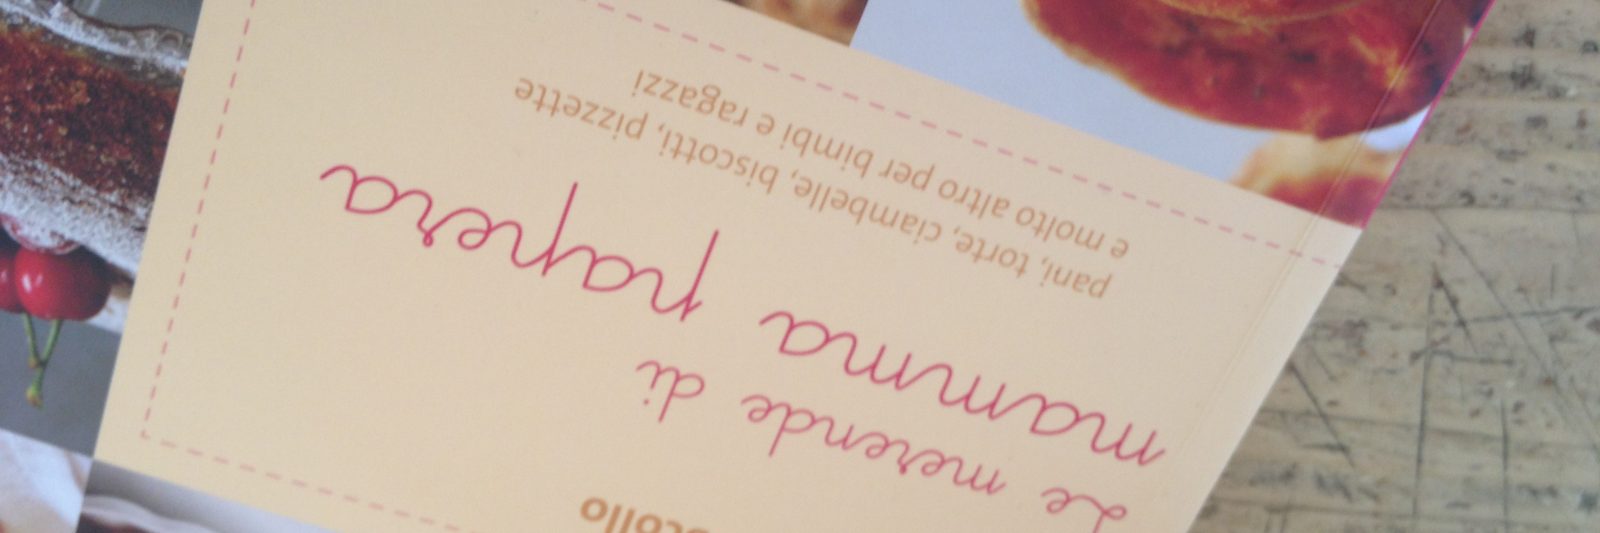 Le merende di
mamma papera
pani, torte, ciambelle, biscotti, pizzette
e molto altro per bimbi e ragazzi